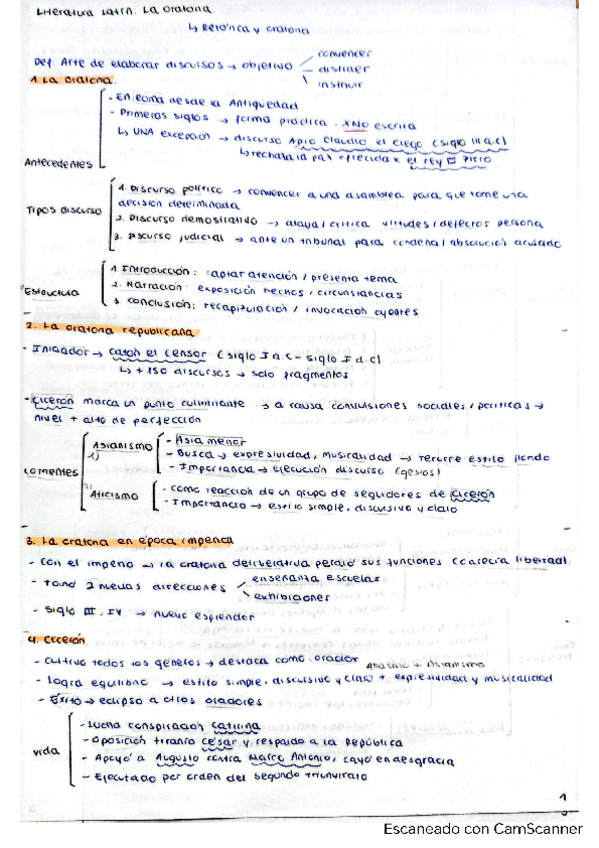 Literatura Latín. La Oratoria
↳ Retórica y oratoria
Def Arte de elaborar discursos → objetivo
convencer
distraer
instruir
1. La Oratoria.
Antecedentes
- En Roma desde la Antigüedad
- Primeros siglos → forma práctica. XNO escrita
↳ UNA excepción → discurso Apio Claudio el ciego (siglo III a.C)
↳ rechaza la paz ofrecida x el rey Pirro
Tipos discurso
1. Discurso político → convencer a una asamblea para que tome una
decisión determinada
2. Discurso demostrativo → alaba/critica virtudes/defectos persona
3. Discurso judicial → ante un tribunal para condena/absolución acusado
Estructura
1. Introducción: captar atención/presenta tema
2. Narración: exposición hechos/circunstancias
3. Conclusión: recapitulación/invocación oyentes
2. La oratoria republicana
- Iniciador → Catón el Censor (siglo I a.C - siglo I d.C)
↳ + 150 discursos → solo fragmentos
- Cicerón marca un punto culminante → a causa convulsiones sociales/políticas →
nivel + alto de perfección
Corrientes
Asianismo
1)
- Asia menor
- Busca → expresividad, musicalidad → recurre estilo
- Importancia → ejecución discurso (gestos)
2)
Aticismo
- como reacción de un grupo de seguidores de Cicerón
- Importancia → estilo simple, discursivo y claro
3. La oratoria en época imperial
- Con el imperio → la oratoria deliberativa perdió sus funciones (carecía libertad)
- Tomó 2 nuevas direcciones
enseñanza escuelas
exhibiciones
- Siglo III, IV → nuevo esplendor
4. Cicerón
- Cultivó todos los géneros → destaca como orador
Aticismo + Asianismo
- Logra equilibrio → estilo simple, discursivo y claro + expresividad y musicalidad
- Éxito → eclipsó a otros oradores
Vida
- Lucha conspiración Catilina
- Oposición tiranía César y respaldo a la República
- Apoyó a Augusto contra Marco Antonio, cayó en desgracia
- Ejecutado por orden del segundo triunvirato
1
Escaneado con CamScanner